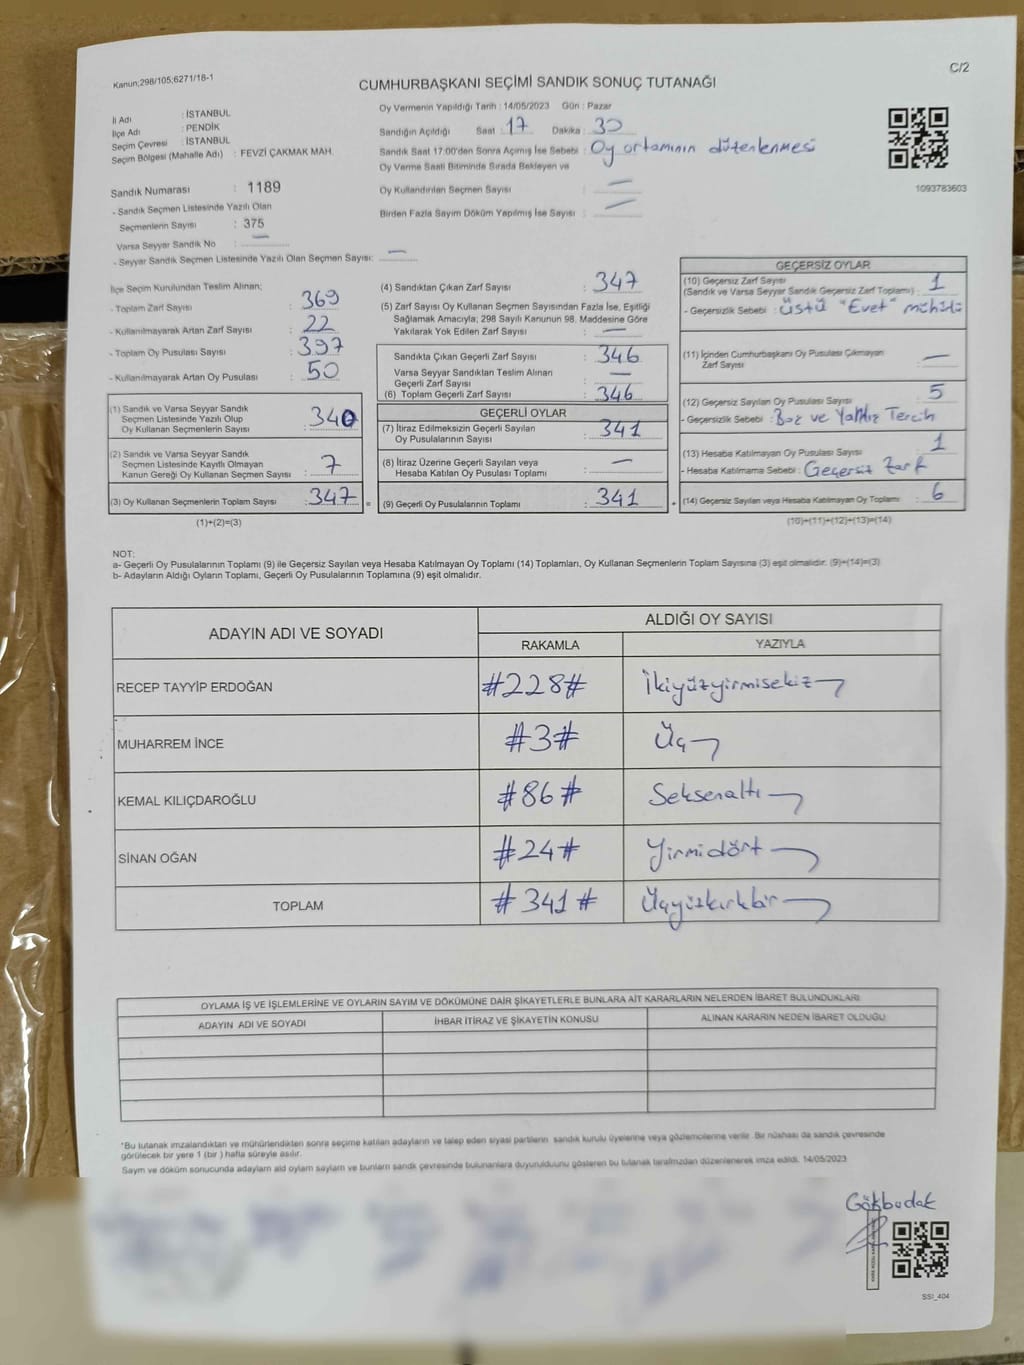 Kanun;298/105;6271/18-1
C/2
CUMHURBAŞKANI SEÇİMİ SANDIK SONUÇ TUTANAĞI
İl Adı : İSTANBUL
İlçe Adı : PENDİK
Seçim Çevresi : İSTANBUL
Seçim Bölgesi (Mahalle Adı) : FEVZİ ÇAKMAK MAH.
Sandık Numarası : 1189
- Sandık Seçmen Listesinde Yazılı Olan
Seçmenlerin Sayısı : 375
Varsa Seyyar Sandık No : —
- Seyyar Sandık Seçmen Listesinde Yazılı Olan Seçmen Sayısı: —
Oy Vermenin Yapıldığı Tarih : 14/05/2023 Gün : Pazar
Sandığın Açıldığı Saat : 17 Dakika : 30
Sandık Saat 17:00'den Sonra Açımış İse Sebebi : Oy ortamının düzenlenmesi
Oy Verme Saati Bitiminde Sırada Bekleyen ve
Oy Kullandırılan Seçmen Sayısı : —
Birden Fazla Sayım Döküm Yapılmış İse Sayısı : —
1093783603
İlçe Seçim Kurulundan Teslim Alınan;
- Toplam Zarf Sayısı : 369
- Kullanılmayarak Artan Zarf Sayısı : 22
- Toplam Oy Pusulası Sayısı : 397
- Kullanılmayarak Artan Oy Pusulası : 50
(1) Sandık ve Varsa Seyyar Sandık
Seçmen Listesinde Yazılı Olup
Oy Kullanan Seçmenlerin Sayısı : 340
(2) Sandık ve Varsa Seyyar Sandık
Seçmen Listesinde Kayıtlı Olmayan
Kanun Gereği Oy Kullanan Seçmen Sayısı : 7
(3) Oy Kullanan Seçmenlerin Toplam Sayısı : 347 =
(1)+(2)=(3)
(4) Sandıktan Çıkan Zarf Sayısı : 347
(5) Zarf Sayısı Oy Kullanan Seçmen Sayısından Fazla İse, Eşitliği
Sağlamak Amacıyla; 298 Sayılı Kanunun 98. Maddesine Göre
Yakılarak Yok Edilen Zarf Sayısı : —
Sandıkta Çıkan Geçerli Zarf Sayısı : 346
Varsa Seyyar Sandıktan Teslim Alınan
Geçerli Zarf Sayısı : —
(6) Toplam Geçerli Zarf Sayısı : 346
GEÇERLİ OYLAR
(7) İtiraz Edilmeksizin Geçerli Sayılan
Oy Pusulalarının Sayısı : 341
(8) İtiraz Üzerine Geçerli Sayılan veya
Hesaba Katılan Oy Pusulası Toplamı : —
(9) Geçerli Oy Pusulalarının Toplamı : 341 +
GEÇERSİZ OYLAR
(10) Geçersiz Zarf Sayısı
(Sandık ve Varsa Seyyar Sandık Geçersiz Zarf Toplamı) : 1
- Geçersizlik Sebebi : üstü "Evet" mühürlü
(11) İçinden Cumhurbaşkanı Oy Pusulası Çıkmayan
Zarf Sayısı : —
(12) Geçersiz Sayılan Oy Pusulası Sayısı : 5
- Geçersizlik Sebebi : Boş ve Yanlış Tercih
(13) Hesaba Katılmayan Oy Pusulası Sayısı : 1
- Hesaba Katılmama Sebebi : Geçersiz Zarf
(14) Geçersiz Sayılan veya Hesaba Katılmayan Oy Toplamı : 6
(10)+(11)+(12)+(13)=(14)
NOT:
a- Geçerli Oy Pusulalarının Toplamı (9) ile Geçersiz Sayılan veya Hesaba Katılmayan Oy Toplamı (14) Toplamları, Oy Kullanan Seçmenlerin Toplam Sayısına (3) eşit olmalıdır. (9)+(14)=(3)
b- Adayların Aldığı Oyların Toplamı, Geçerli Oy Pusulalarının Toplamına (9) eşit olmalıdır.
ADAYIN ADI VE SOYADI
ALDIĞI OY SAYISI
RAKAMLA YAZIYLA
RECEP TAYYİP ERDOĞAN #228# İkiyüzyirmisekiz
MUHARREM İNCE #3# Üç
KEMAL KILIÇDAROĞLU #86# Seksenaltı
SİNAN OĞAN #24# Yirmidört
TOPLAM #341# Üçyüzkırkbir
OYLAMA İŞ VE İŞLEMLERİNE VE OYLARIN SAYIM VE DÖKÜMÜNE DAİR ŞİKAYETLERLE BUNLARA AİT KARARLARIN NELERDEN İBARET BULUNDUKLARI
ADAYIN ADI VE SOYADI İHBAR İTİRAZ VE ŞİKAYETİN KONUSU ALINAN KARARIN NEDEN İBARET OLDUĞU
"Bu tutanak imzalandıktan ve mühürlendikten sonra seçime katılan adayların ve talep eden siyasi partilerin sandık kurulu üyelerine veya gözlemcilerine verilir. Bir nüshası da sandık çevresinde
görülecek bir yere 1 (bir) hafta süreyle asılır.
Sayım ve döküm sonucunda adayların ald oyların sayların ve bunların sandık çevresinde bulunanlara duyurulduunu gösteren bu tutanak tarafmzdan düzenlenerek imza edildi. 14/05/2023
Gökbudak
SSI_404